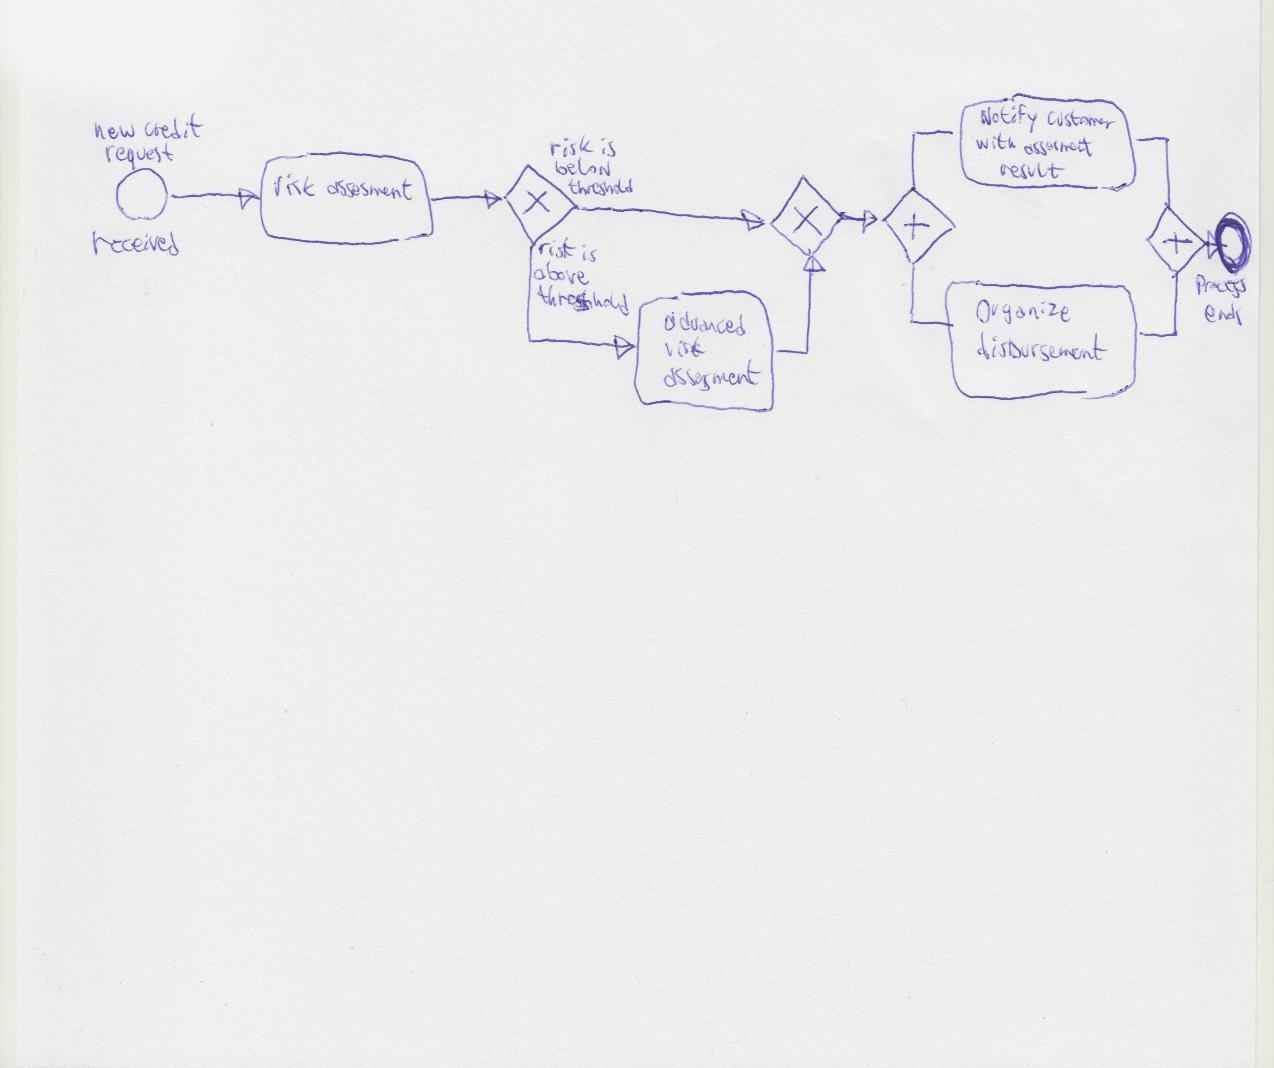 new credit
request
received
risk assesment
risk is
below
threshold
risk is
above
threshold
advanced
risk
assesment
Notify customer
with assesment
result
Organize
disbursement
Process
ends